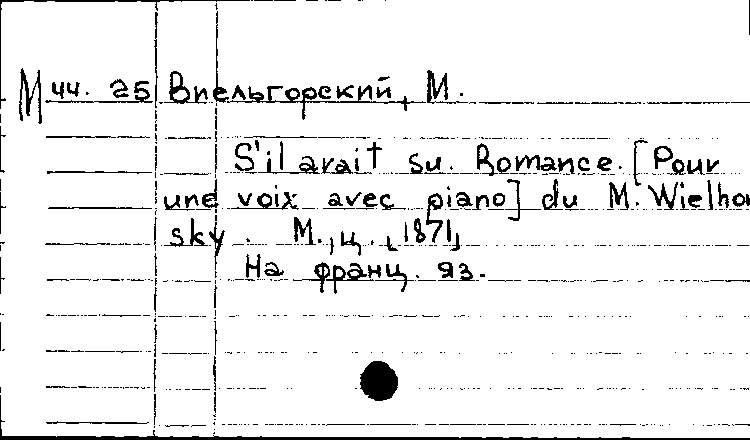 М чч. 25 Виельгорский, М.
S'il avait su. Romance. [Pour
une voix avec piano] du M. Wielhor
sky. М., ц. 1871
На франц. яз.